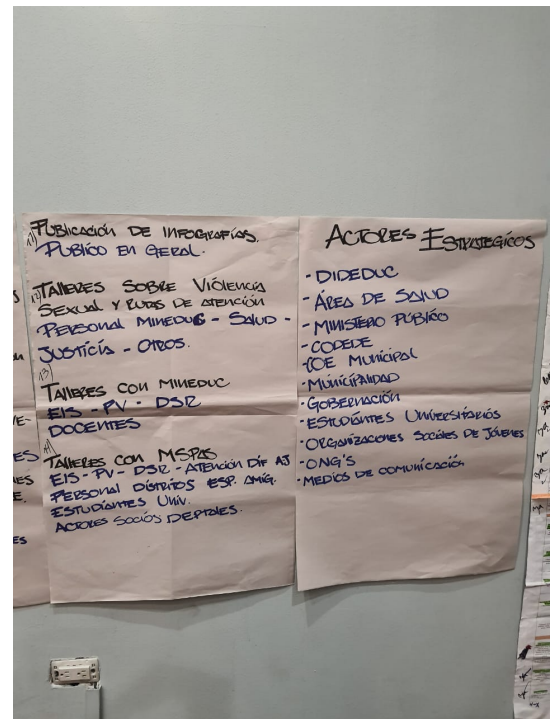 11) PUBLICACIÓN DE INFOGRAFÍAS.
PUBLICO EN GERAL.
12) TALLERES SOBRE VIOLENCIA
SEXUAL Y RUTAS DE ATENCIÓN
PERSONAL MINEDUC - SALUD -
JUSTICÍA - OTROS.
13)
TALLERES CON MINEDUC
EIS - PV - DSR
DOCENTES
TALLERES CON MSPAS
EIS - PV - DSR - ATENCIÓN DIF AJ
PERSONAL DISTRITOS ESP. AMIG.
ESTUDIANTES UNIV.
ACTORES SOCIOS DEPTALES.
ACTORES ESTRATEGICOS
- DIDEDUC
- ÁREA DE SALUD
- MINISTERIO PÚBLICO
- CODEDE
- COE MUNICIPAL
- MUNICIPALIDAD
- GOBERNACIÓN
- ESTUDIANTES UNIVERSITARIOS
- ORGANIZACIONES SOCIALES DE JÓVENES
- ONG'S
- MEDIOS DE COMUNICACIÓN